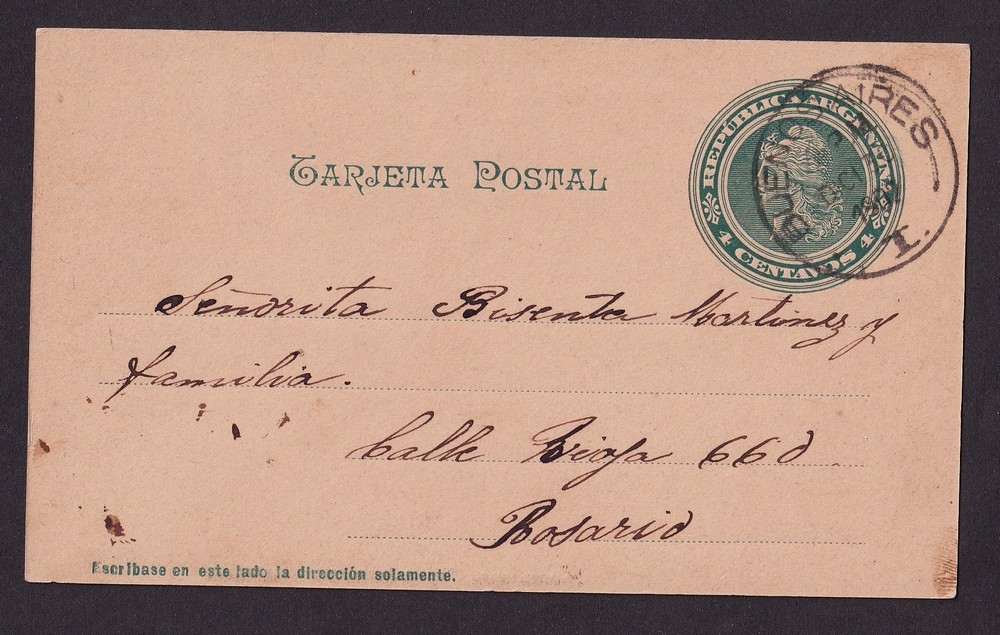 REPÚBLICA ARGENTINA
4 CENTAVOS 4
BUENOS AIRES
I.
TARJETA POSTAL
Señorita Bisenta Martinez y
familia.
Calle Rioja 660
Rosario
Escríbase en este lado la dirección solamente.